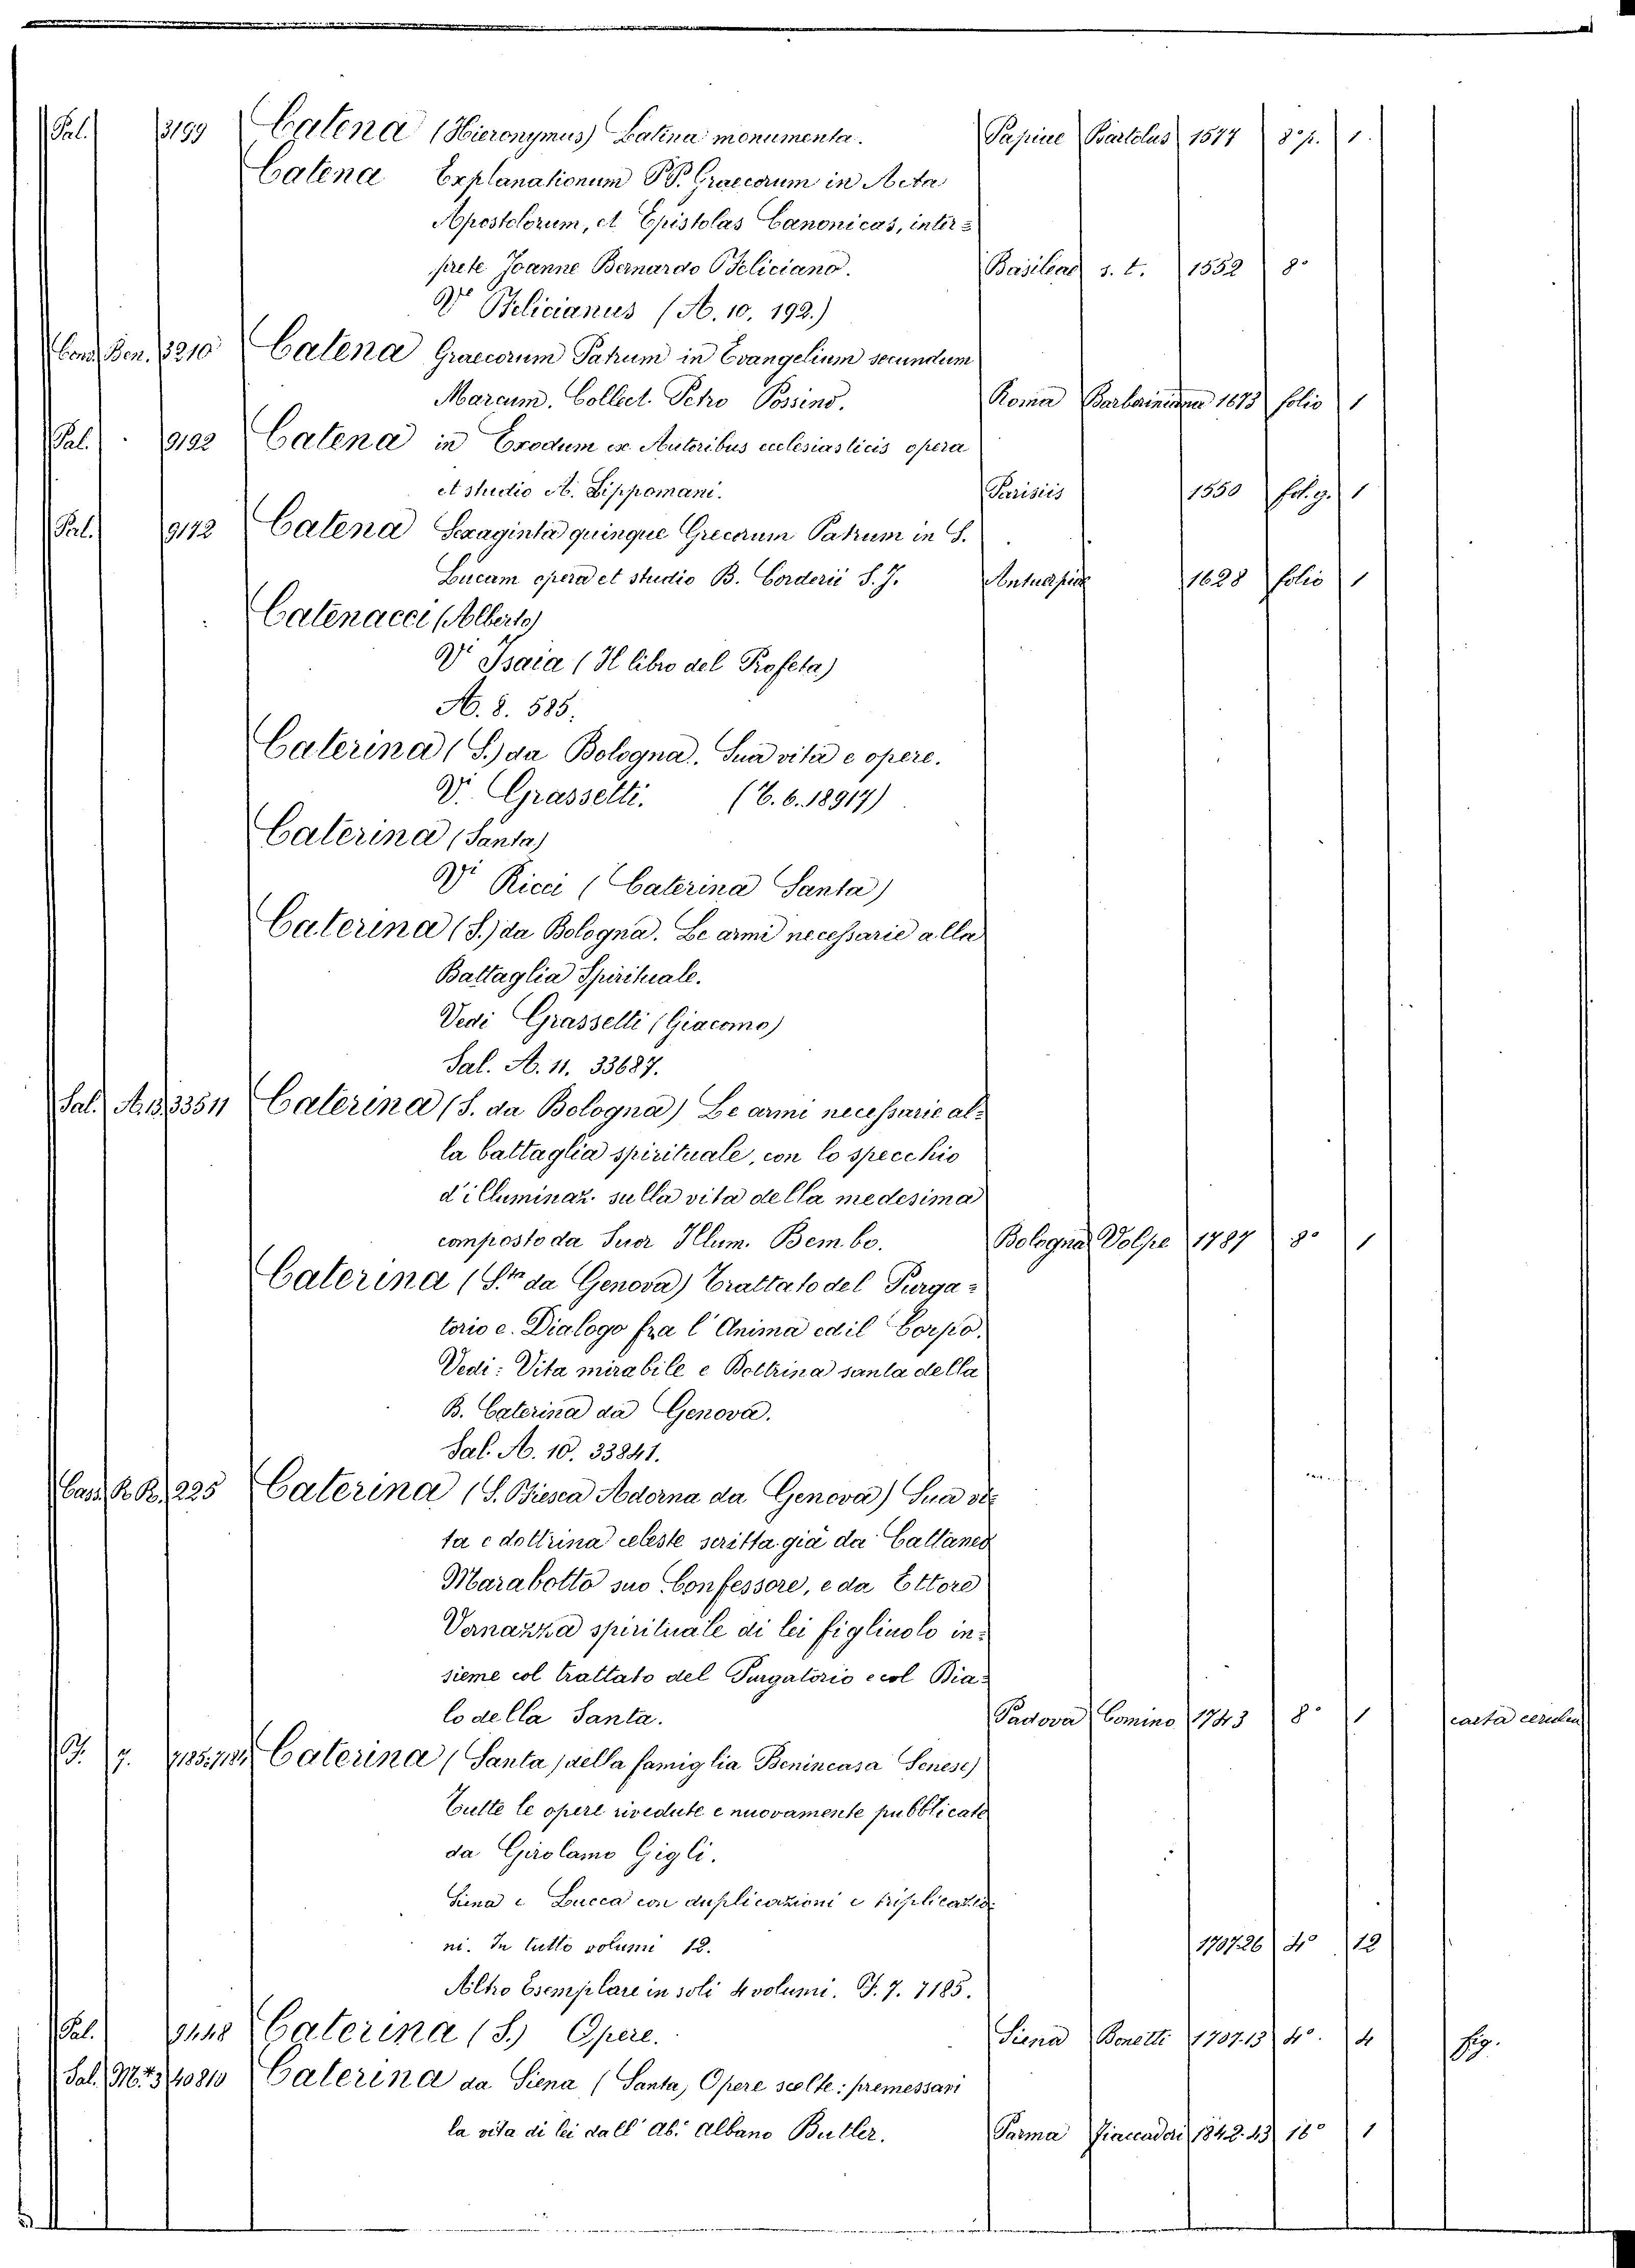 Pal. 3199 Catena (Hieronymus) Latina monumenta. Papiae Bartolus 1577 8° p. 1.
Catena Explanationum PP. Graecorum in Acta
Apostolorum, et Epistolas Canonicas, inter=
prete Joanne Bernardo Feliciano. Basileae s. t. 1552 8°
Vi Felicianus (A. 10. 192.)
Cons. Ben. 3210 Catena Graecorum Patrum in Evangelium secundum
Marcum. Collect. Petro Possino. Roma 1673 folio 1
Pal. 9192 Catena in Exodum ex Autoribus ecclesiasticis opera
et studio A. Lippomani. Parisiis 1550 fol. g. 1
Pal. 9172 Catena Sexaginta quinque Grecorum Patrum in S.
Lucam opera et studio B. Corderii S. J. Antuerpiae 1628 folio 1
Catenacci (Alberto)
Vi Isaia (Il libro del Profeta)
A. 8. 585.
Caterina (S.) da Bologna. Sua vita e opere.
Vi Grassetti. (6. 18917)
Caterina (Santa)
Vi Ricci (Caterina Santa)
Caterina (S.) da Bologna. Le armi necessarie alla
Battaglia Spirituale.
Vedi Grasselli (Giacomo)
Sal. A. 11. 33687.
Sal. A. 13. 33511 Caterina (S. da Bologna) Le armi necessarie al=
la battaglia spirituale, con lo specchio
d'illuminaz. sulla vita della medesima
composto da Suor Illum. Bembo. Bologna Volpe 1787 8° 1
Caterina (Sta da Genova) Trattato del Purga=
torio e. Dialogo fra l'Anima ed il Corpo.
Vedi: Vita mirabile e Dottrina santa della
B. Caterina da Genova.
Sal. A. 10. 33841.
Cass. R. R. 225 Caterina (S. Fiesca Adorna da Genova) Sua vi=
ta e dottrina celeste scritta già da Cattaneo
Marabotto suo Confessore, e da Ettore
Vernazza spirituale di lei figliuolo in=
sieme col trattato del Purgatorio e col Dia=
lo della Santa. Padova Comino 1743 8° 1 carta
7. Caterina (Santa) della famiglia Benincasa Senese)
Tutte le opere rivedute e nuovamente pubblicate
da Girolamo Gigli.
Siena e Lucca con duplicazioni e triplicazio=
ni. In tutto volumi 12. 1707.26 4° 12
Altro Esemplare in soli 4 volumi. F. 7. 7185.
Pal. 9448 Caterina (S.) Opere. Siena Bonetti 1707.13 4°. 4 fig.
Sal. 40810 Caterina da Siena (Santa) Opere scelte: premessavi
la vita di lei dall' Ab. Albano Butler. Parma Fiaccadori 1842.43 16° 1